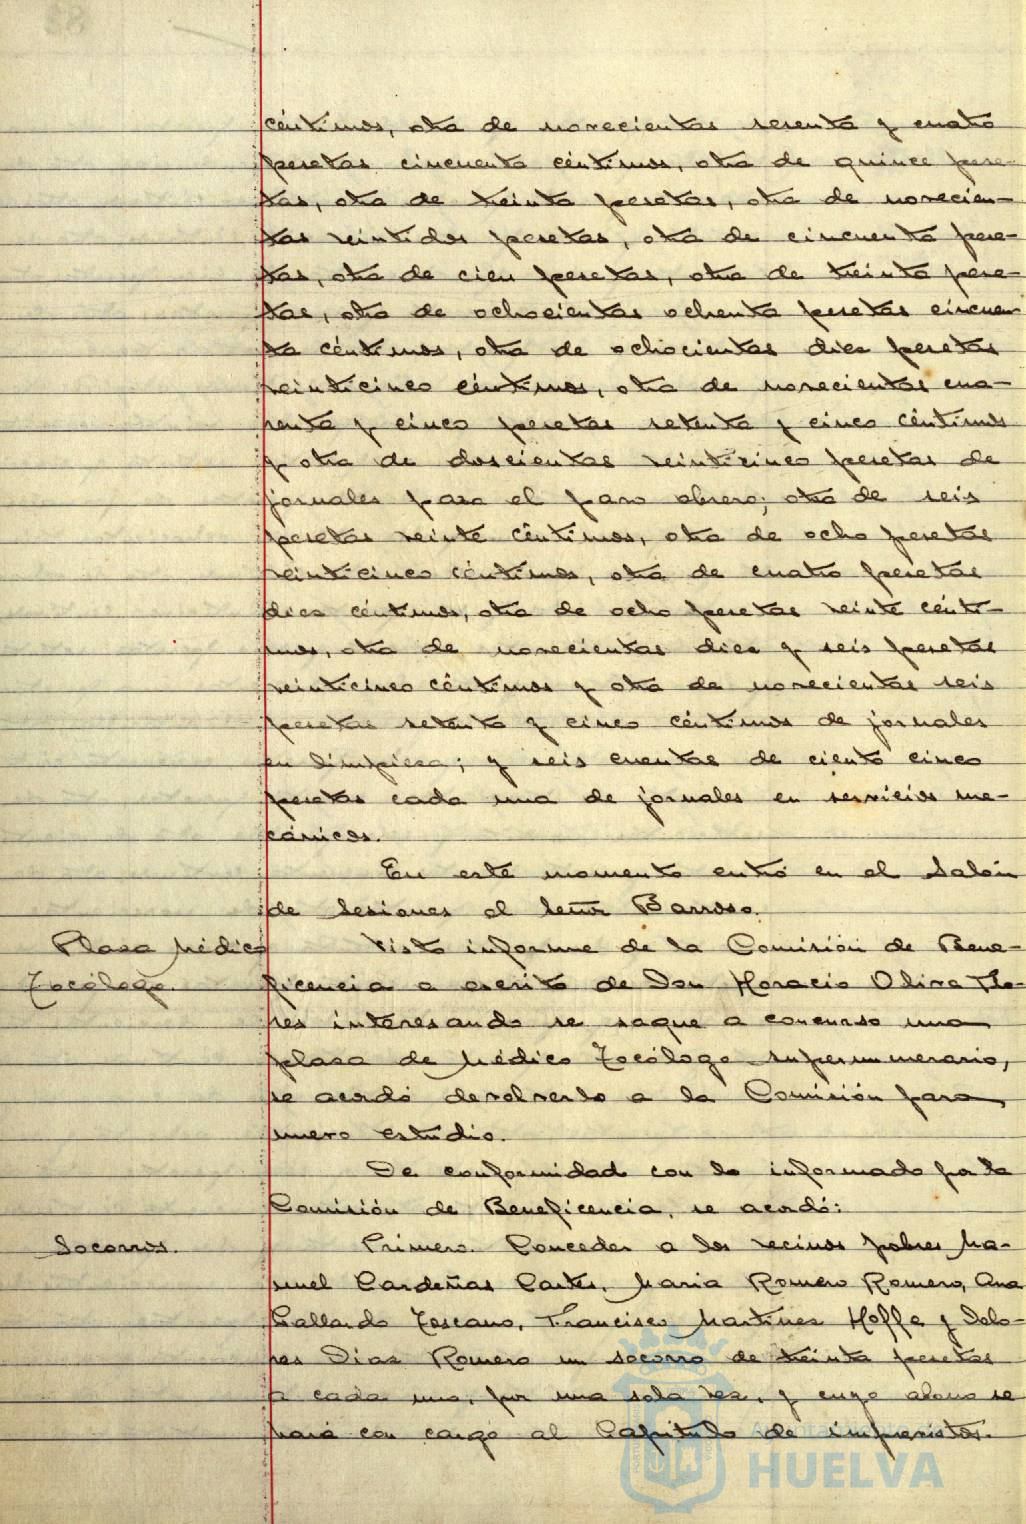 céntimos, otra de novecientas sesenta y cuatro
pesetas cincuenta céntimos, otra de quince pese-
tas, otra de treinta pesetas, otra de novecien-
tas veintidos pesetas, otra de cincuenta pese-
tas, otra de cien pesetas, otra de treinta pese-
tas, otra de ochocientas ochenta pesetas cincuen-
ta céntimos, otra de ochocientas diez pesetas
veinticinco céntimos, otra de novecientas cua-
renta y cinco pesetas setenta y cinco céntimos
y otra de doscientas veinticinco pesetas de
jornales para el paro obrero; otra de seis
pesetas veinte céntimos, otra de ocho pesetas
veinticinco céntimos, otra de cuatro pesetas
diez céntimos, otra de ocho pesetas veinte cénti-
mos, otra de novecientas diez y seis pesetas
veinticinco céntimos y otra de novecientas seis
pesetas setenta y cinco céntimos de jornales
en limpieza; y seis cuentas de ciento cinco
pesetas cada una de jornales en servicios me-
cánicos.
En este momento entró en el Salón
de Sesiones el Señor Barroso.
Plaza Médico
Tocólogo.
Visto informe de la Comisión de Bene-
ficencia a escrito de Don Horacio Oliva Flo-
res interesando se saque a concurso una
plaza de Médico Tocólogo supernumerario,
se acordó devolverlo a la Comisión para
nuevo estudio.
De conformidad con lo informado por la
Comisión de Beneficencia, se acordó:
Socorros.
Primero. Conceder a los vecinos pobres Ma-
nuel Cardeñas Cortes, Maria Romero Romero, Ana
Gallardo Toscano, Francisco Martínez Hoffe y Dolo-
res Diaz Romero un socorro de treinta pesetas
a cada uno, por una sola vez, y cuyo abono se
hará con cargo al Capítulo de imprevistos.
Ayuntamiento de
HUELVA